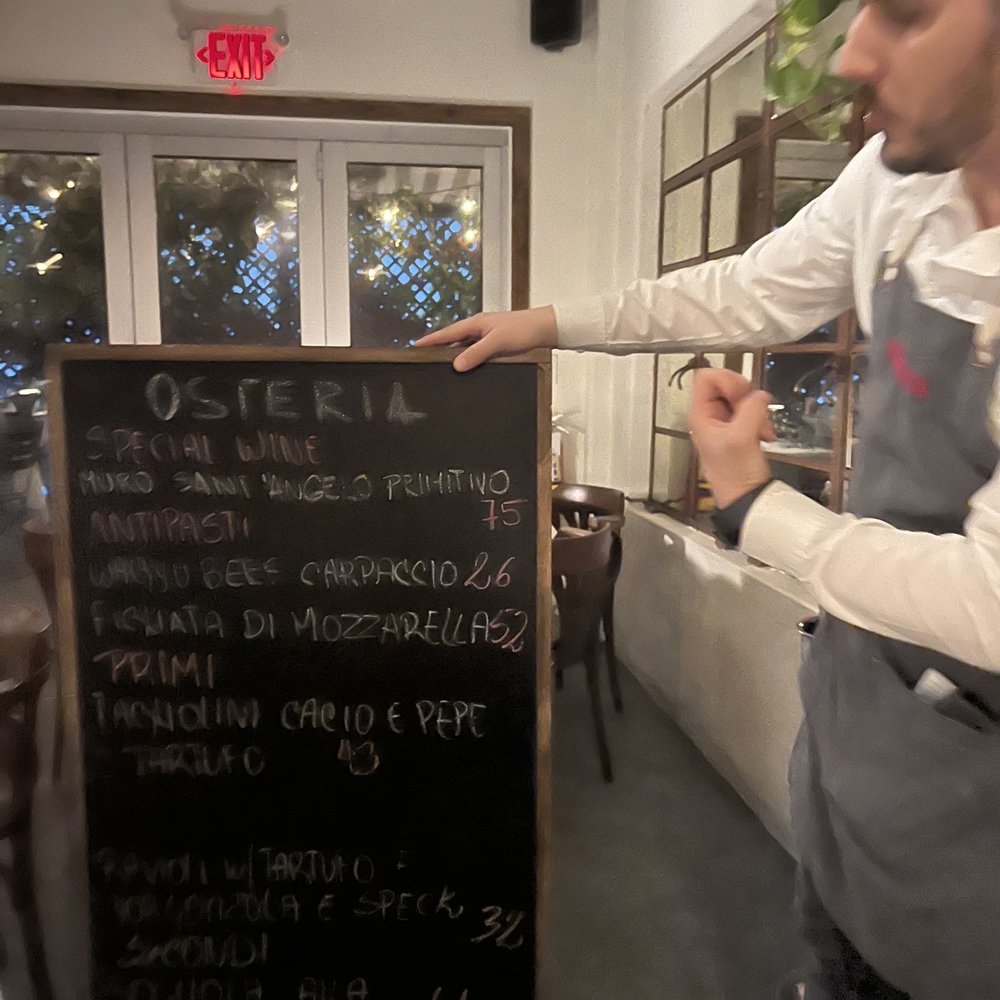 EXIT
OSTERIA
SPECIAL WINE
MURO SANT'ANGELO PRIMITIVO
75
ANTIPASTI
WAGYU BEEF CARPACCIO 26
FIGLIATA DI MOZZARELLA 52
PRIMI
TAGLIOLINI CACIO E PEPE
E TARTUFO
RAVIOLI W/TARTUFO E
GORGONZOLA E SPECK 32
SECONDI
ALLA